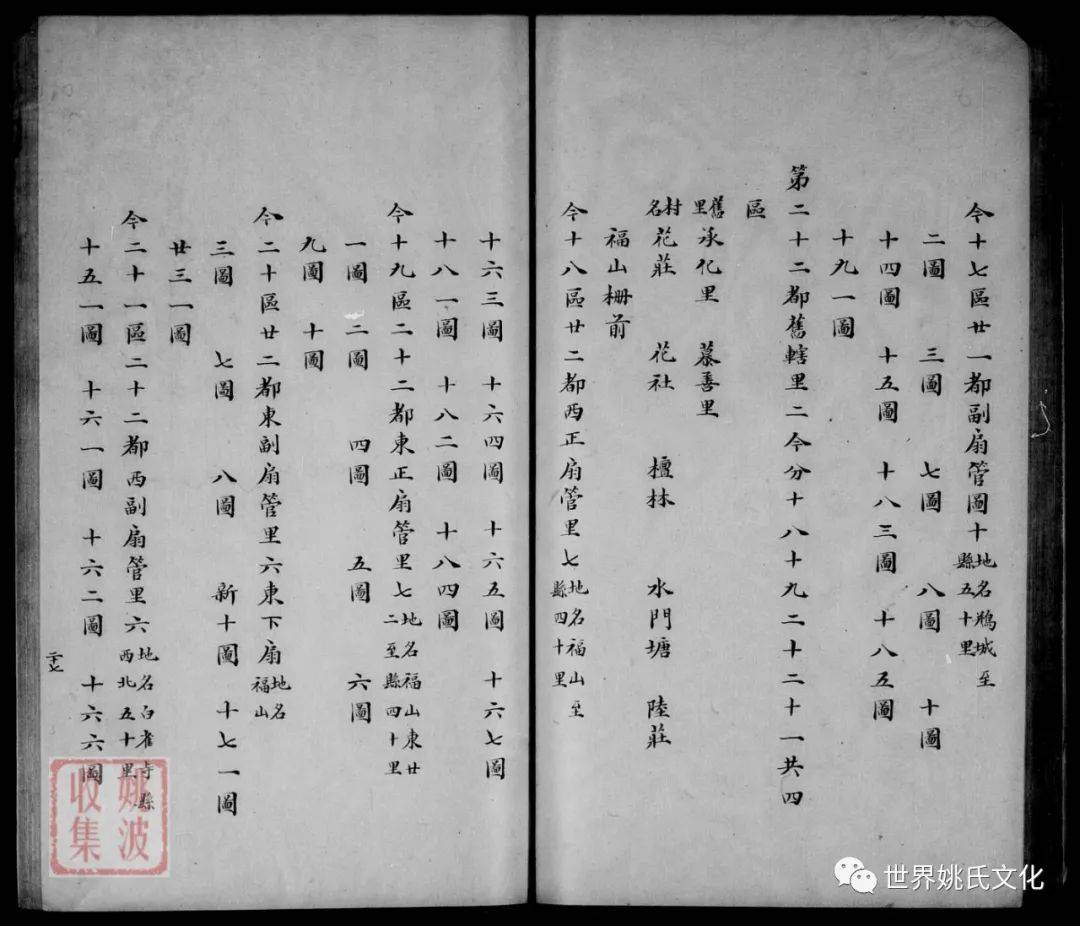 今十七區廿一都副扇管圖十地名鴉城至縣五十里
二圖 三圖 七圖 八圖 十圖
十四圖 十五圖 十八三圖 十八五圖
十九一圖
第二十二都舊轄里二今分十八十九二十二十一共四
區
舊里承化里 慕善里
村名花莊 花社 檀林 水門塘 陸莊
福山柵前
今十八區廿二都西正扇管里七地名福山至縣四十里
十六三圖 十六四圖 十六五圖 十六七圖
十八一圖 十八二圖 十八四圖
今十九區二十二都東正扇管里七地名福山東廿二至縣四十里
一圖 二圖 四圖 五圖 六圖
九圖 十圖
今二十區廿二都東副扇管里六東下扇地名福山
三圖 七圖 八圖 新十圖 十七一圖
廿三一圖
今二十一區二十二都西副扇管里六地名白雀寺縣西北五十里
十五一圖 十六一圖 十六二圖 十六六圖
二十七
姚波收集
世界姚氏文化